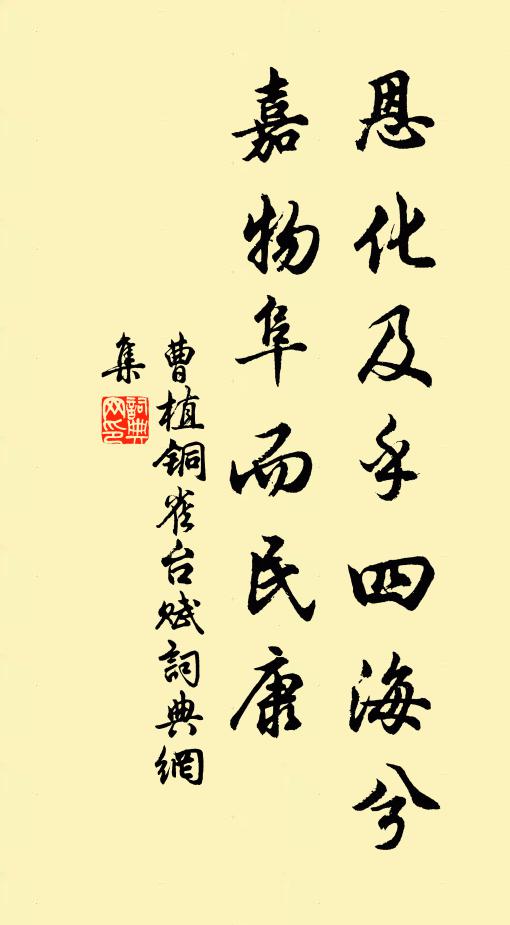 恩化及乎四海兮
嘉物阜而民康
曹植銅雀台賦詞典網
集
詞典
网印